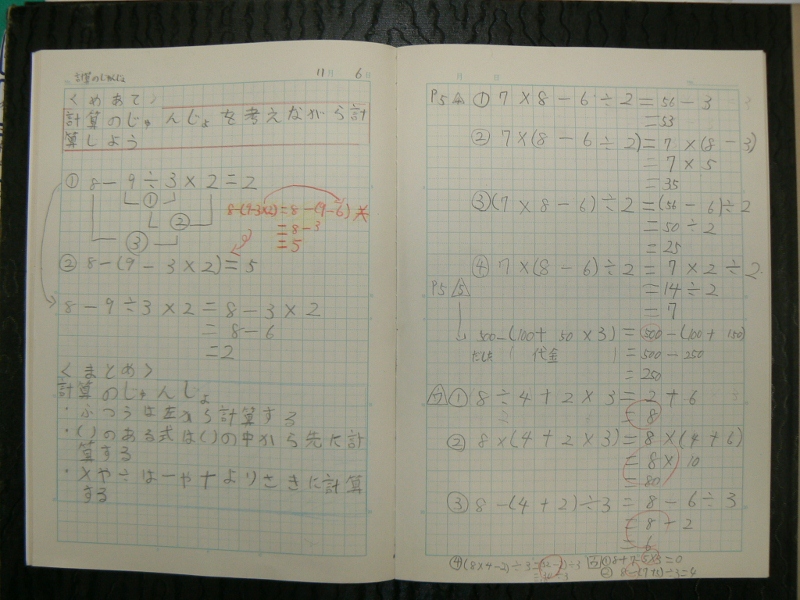 計算のじゅんじょ 11 6
<めあて>
計算のじゅんじょを考えながら計
算しよう
① 8-9÷3×2=2
①
②
③
8-(9-3×2)=8-(9-6)
=8-3
=5
② 8-(9-3×2)=5
8-9÷3×2=8-3×2
=8-6
=2
<まとめ>
計算のじゅんじょ
・ふつうは左から計算する
・()のある式は()の中から先に計
算する
・×や÷は-や+よりさきに計算
する
P5 ④ ① 7×8-6÷2=56-3
=53
② 7×(8-6÷2)=7×(8-3)
=7×5
=35
③ (7×8-6)÷2=(56-6)÷2
=50÷2
=25
④ 7×(8-6)÷2=7×2÷2
=14÷2
=7
P5 ⑤
500-(100+50×3)=500-(100+150)
代金
=500-250
=250
① 8÷4+2×3=2+6
=8
② 8×(4+2×3)=8×(4+6)
=8×10
=80
③ 8-(4+2)÷3=8-6÷3
=8-2
=6
④ (8×4-2)÷3=